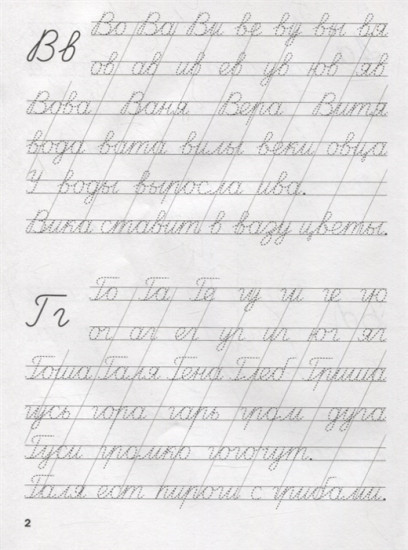 Вв
Во Ва Ви ве ву вы вя
ов ав ив ев ув юв яв
Вова Ваня Вера Витя
вода вата вилы веки овца
У воды выросла ива.
Вика ставит в вазу цветы.
Гг
Го Га Ге гу ги ге гю
ог аг ег уг иг юг яг
Гоша Галя Гена Глеб Гриша
гусь гора гарь гром дуга
Гуси громко гогочут.
Галя ест пироги с грибами.
2